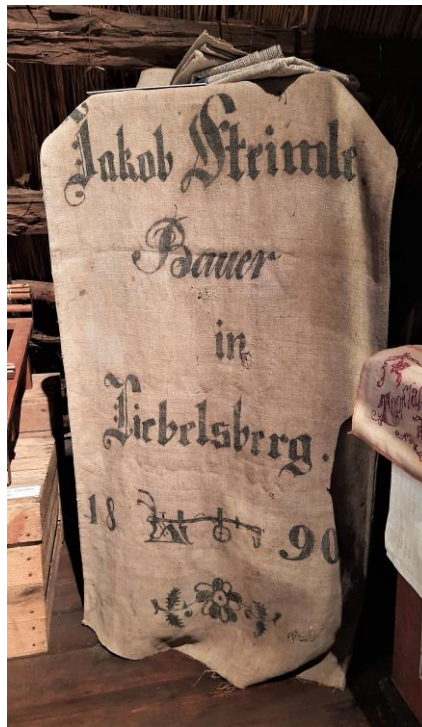 Jakob Streimle
Bauer
in
Liebelsberg.
18 90